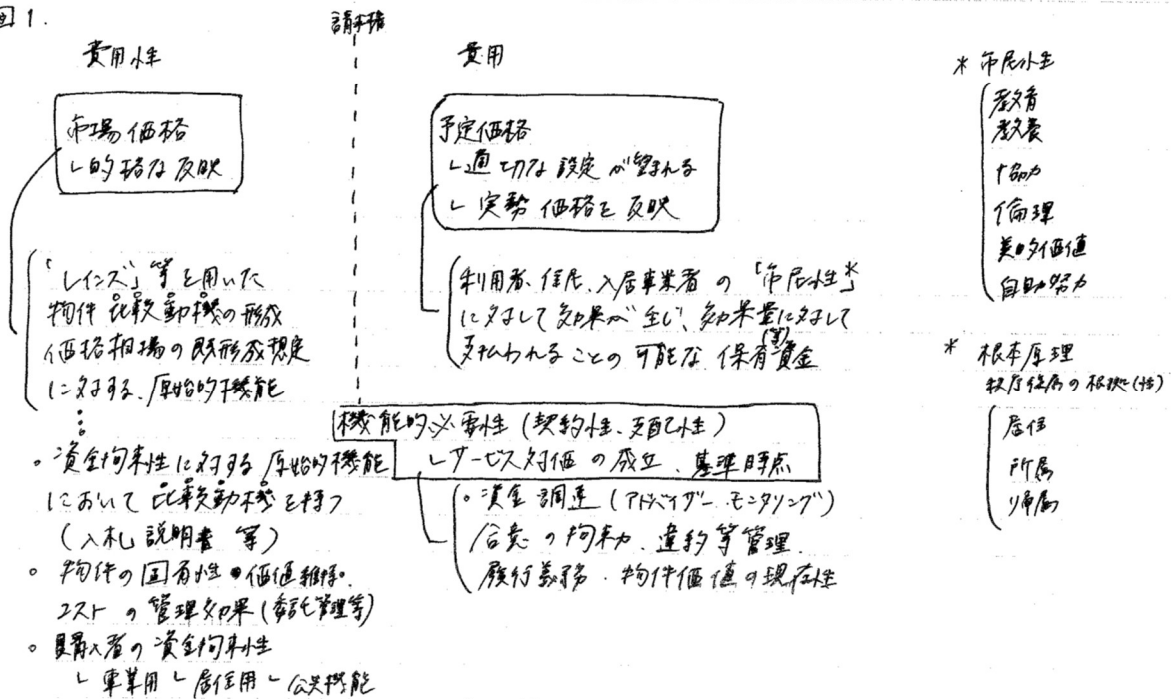 図1.
請求権
費用性
市場価格
└的確な反映
「レインズ」等を用いた
物件比較動機の形成
価格相場の既形成想定
に対する、原始的機能
。資金拘束性に対する原始的機能
において比較動機を持つ
(入札説明書 等)
。物件の固有性・価値維持・
コストの管理効果(委託管理等)
。購入者の資金拘束性
└事業用└居住用└公共機能
費用
予定価格
└適切な設定が望まれる
└実勢価格を反映
利用者、住民、入居事業者の「市民性*」
に対して効果が生じ、効果量に対して
支払われることの可能な保有(等)資金
機能的必要性(契約性、支配性)
└サービス対価の成立、基準時点
。資金調達(アドバイザー、モニタリング)
合意の拘束力、違約等管理、
履行義務・物件価値の現在性
*市民性
教育
教養
協力
倫理
美的価値
自助努力
* 根本原理
(性)
居住
所属
帰属